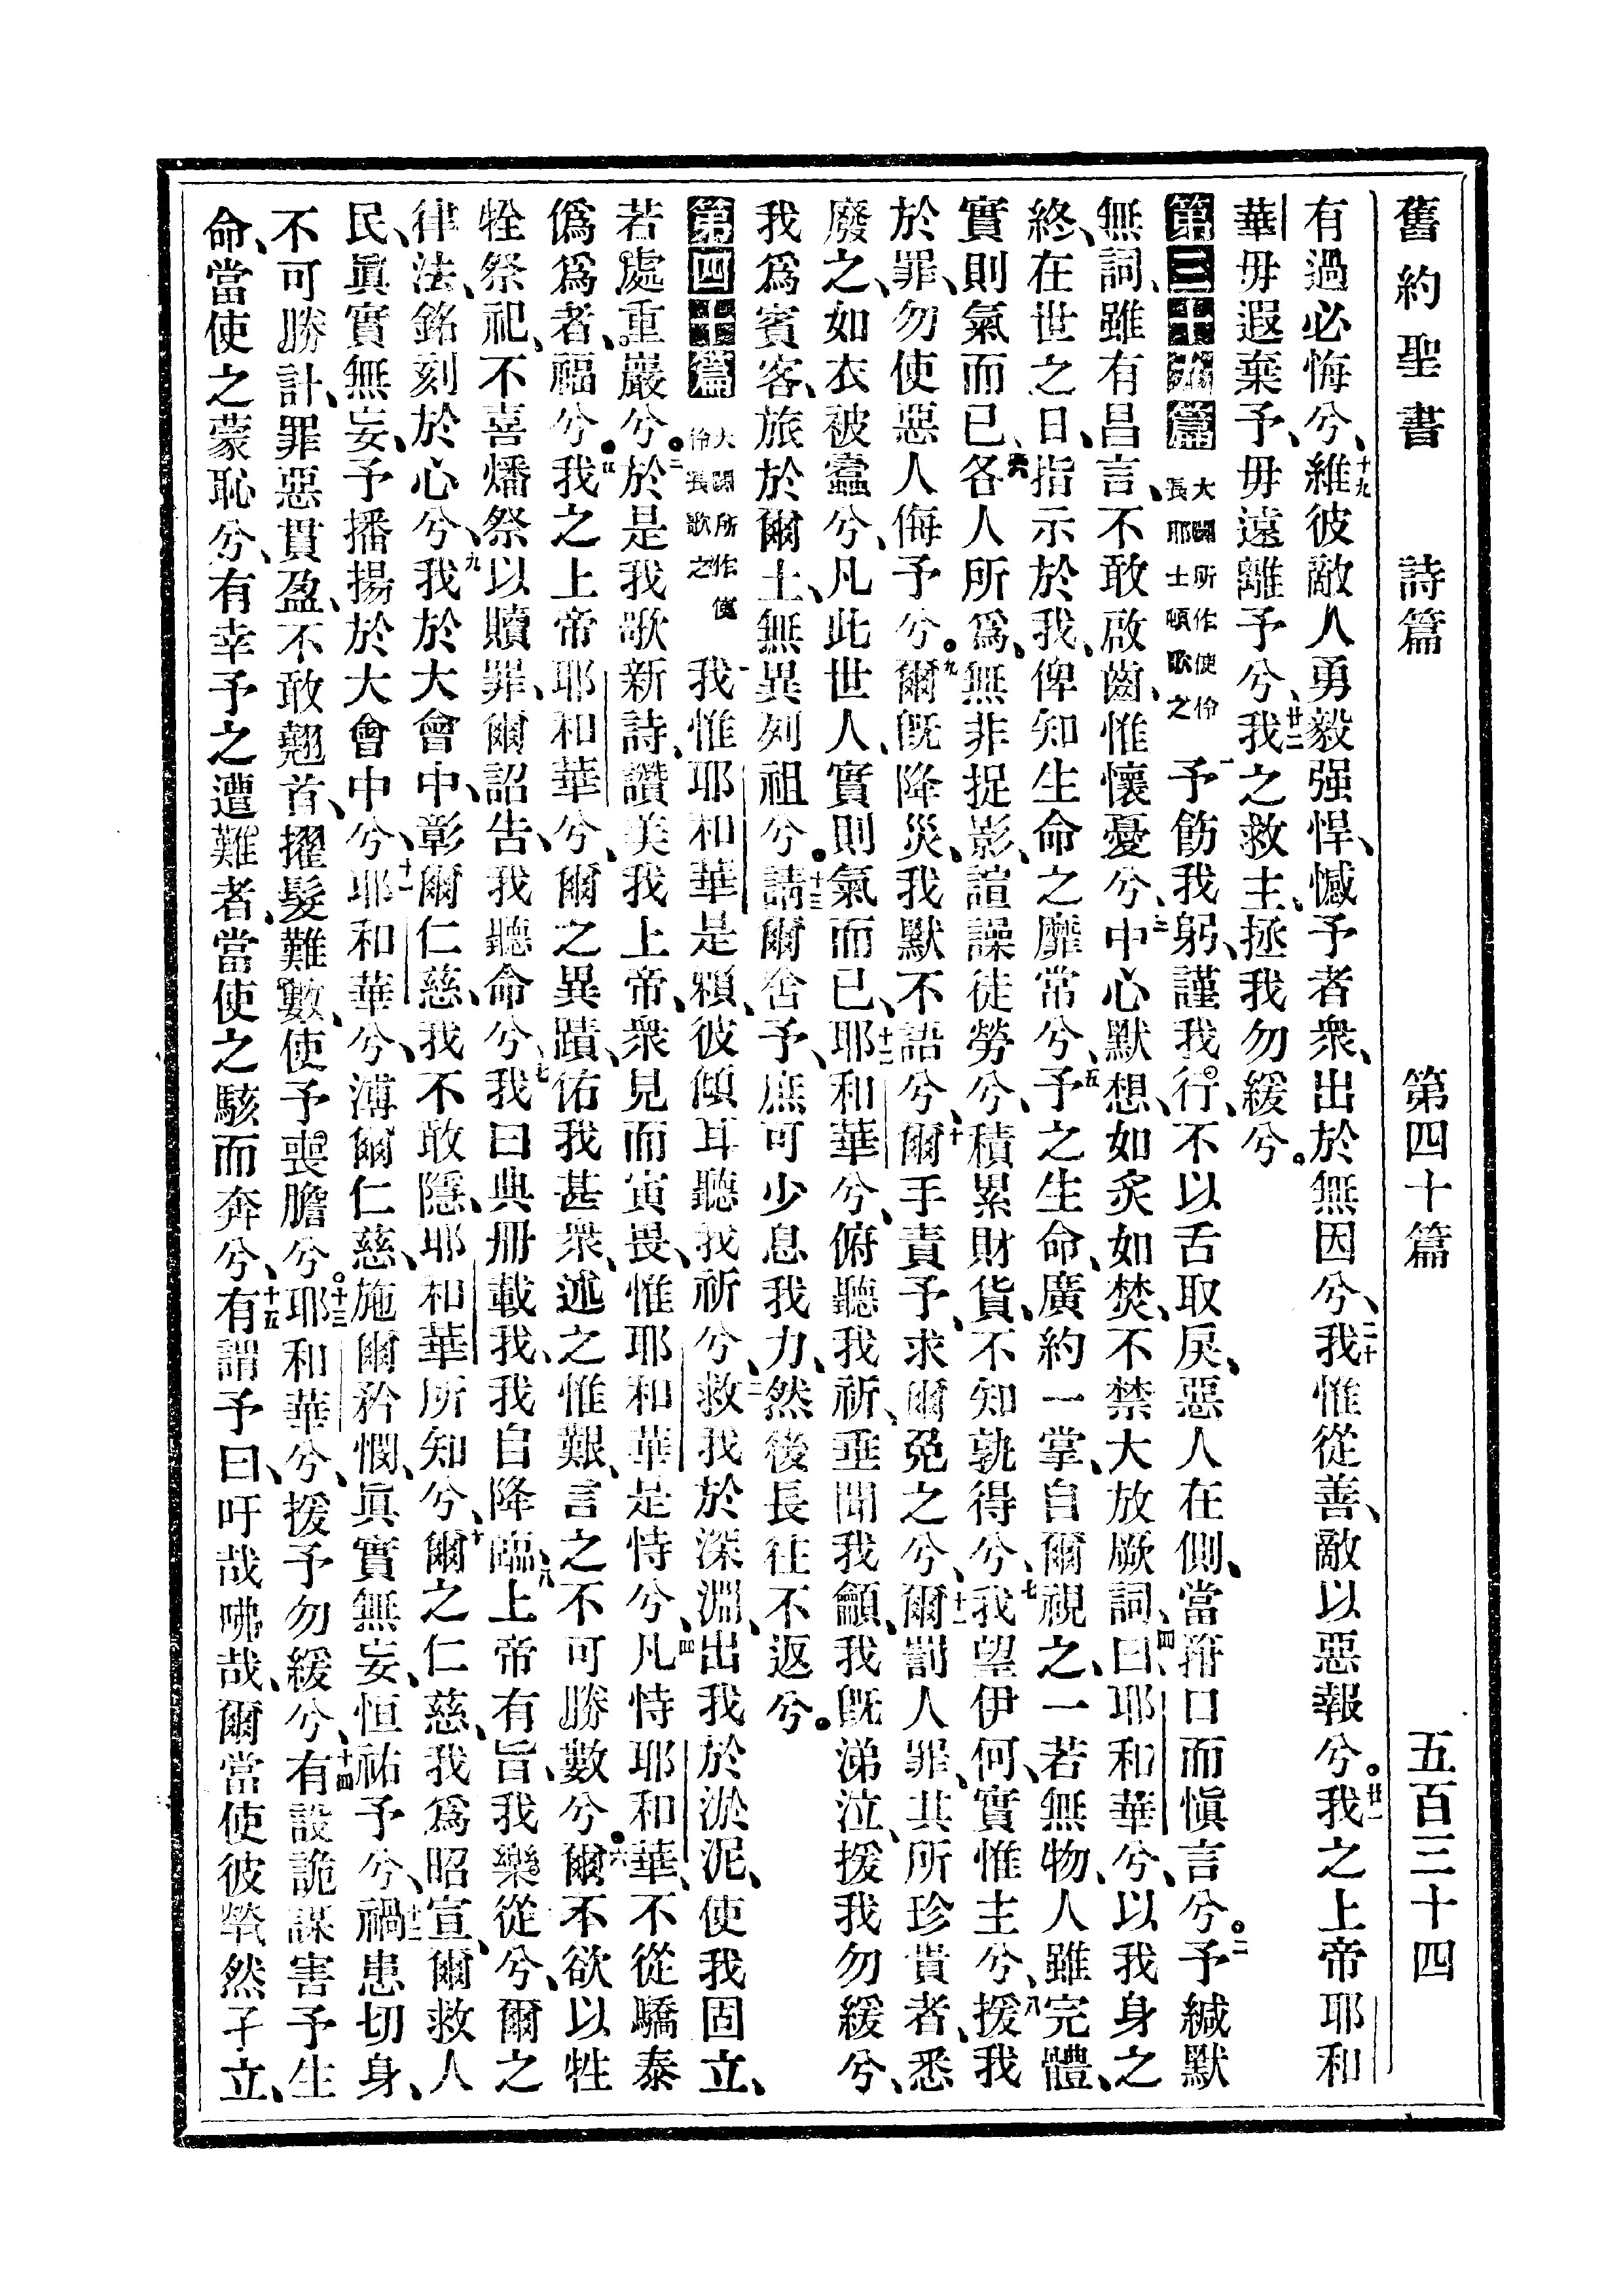 舊約聖書 詩篇 第四十篇 五百三十四
有過必悔兮、十九維彼敵人勇毅强悍、憾予者衆、出於無因兮、二十我惟從善、敵以惡報兮。廿一我之上帝耶和
華毋遐棄予、毋遠離予兮、廿二我之救主、拯我勿緩兮。
第三十九篇 大闢所作使伶長耶土頓歌之 一予飭我躬、謹我行、不以舌取戾、惡人在側、當箝口而愼言兮。二予緘默
無詞、雖有昌言、不敢啟齒、惟懷憂兮、三中心默想、如炙如焚、不禁大放厥詞、四曰、耶和華兮、以我身之
終、在世之日、指示於我、俾知生命之靡常兮、五予之生命、廣約一掌、自爾視之、一若無物、人雖完體、
實則氣而已、六各人所爲、無非捉影、諠譟徒勞兮、積累財貨、不知孰得兮、七我望伊何、實惟主兮、八援我
於罪、勿使惡人侮予兮。九爾旣降災、我默不語兮、十爾手責予、求爾免之兮、十一爾罰人罪、其所珍貴者、悉
廢之、如衣被蠹兮、凡此世人、實則氣而已、十二耶和華兮、俯聽我祈、垂聞我籲、我旣涕泣、援我勿緩兮、
我爲賓客、旅於爾土、無異列祖兮。十三請爾舍予、庶可少息我力、然後長往不返兮。
第四十篇 大闢所作使伶長歌之 一我惟耶和華是賴、彼傾耳聽我祈兮、二救我於深淵、出我於淤泥、使我固立、
若處重巖兮。三於是我歌新詩、讚美我上帝、衆見而寅畏、惟耶和華是恃兮、四凡恃耶和華、不從驕泰
僞爲者、福兮。五我之上帝耶和華兮、爾之異蹟、佑我甚衆、述之惟艱、言之不可勝數兮。六爾不欲以牲
牷祭祀、不喜燔祭以贖罪、爾詔告我聽命兮、七我曰典册載我、我自降臨、八上帝有旨、我樂從兮、爾之
律法、銘刻於心兮、九我於大會中、彰爾仁慈、我不敢隱、耶和華所知兮、十爾之仁慈、我爲昭宣、爾救人
民、眞實無妄、予播揚於大會中兮、十一耶和華兮、溥爾仁慈、施爾矜憫、眞實無妄、恒祐予兮、十二禍患切身、
不可勝計、罪惡貫盈、不敢翹首、擢髮難數、使予喪膽兮。十三耶和華兮、援予勿緩兮、十四有設詭謀害予生
命、當使之蒙恥兮、有幸予之遭難者、當使之駭而奔兮、十五有謂予曰、吁哉咈哉、爾當使彼煢然孑立、